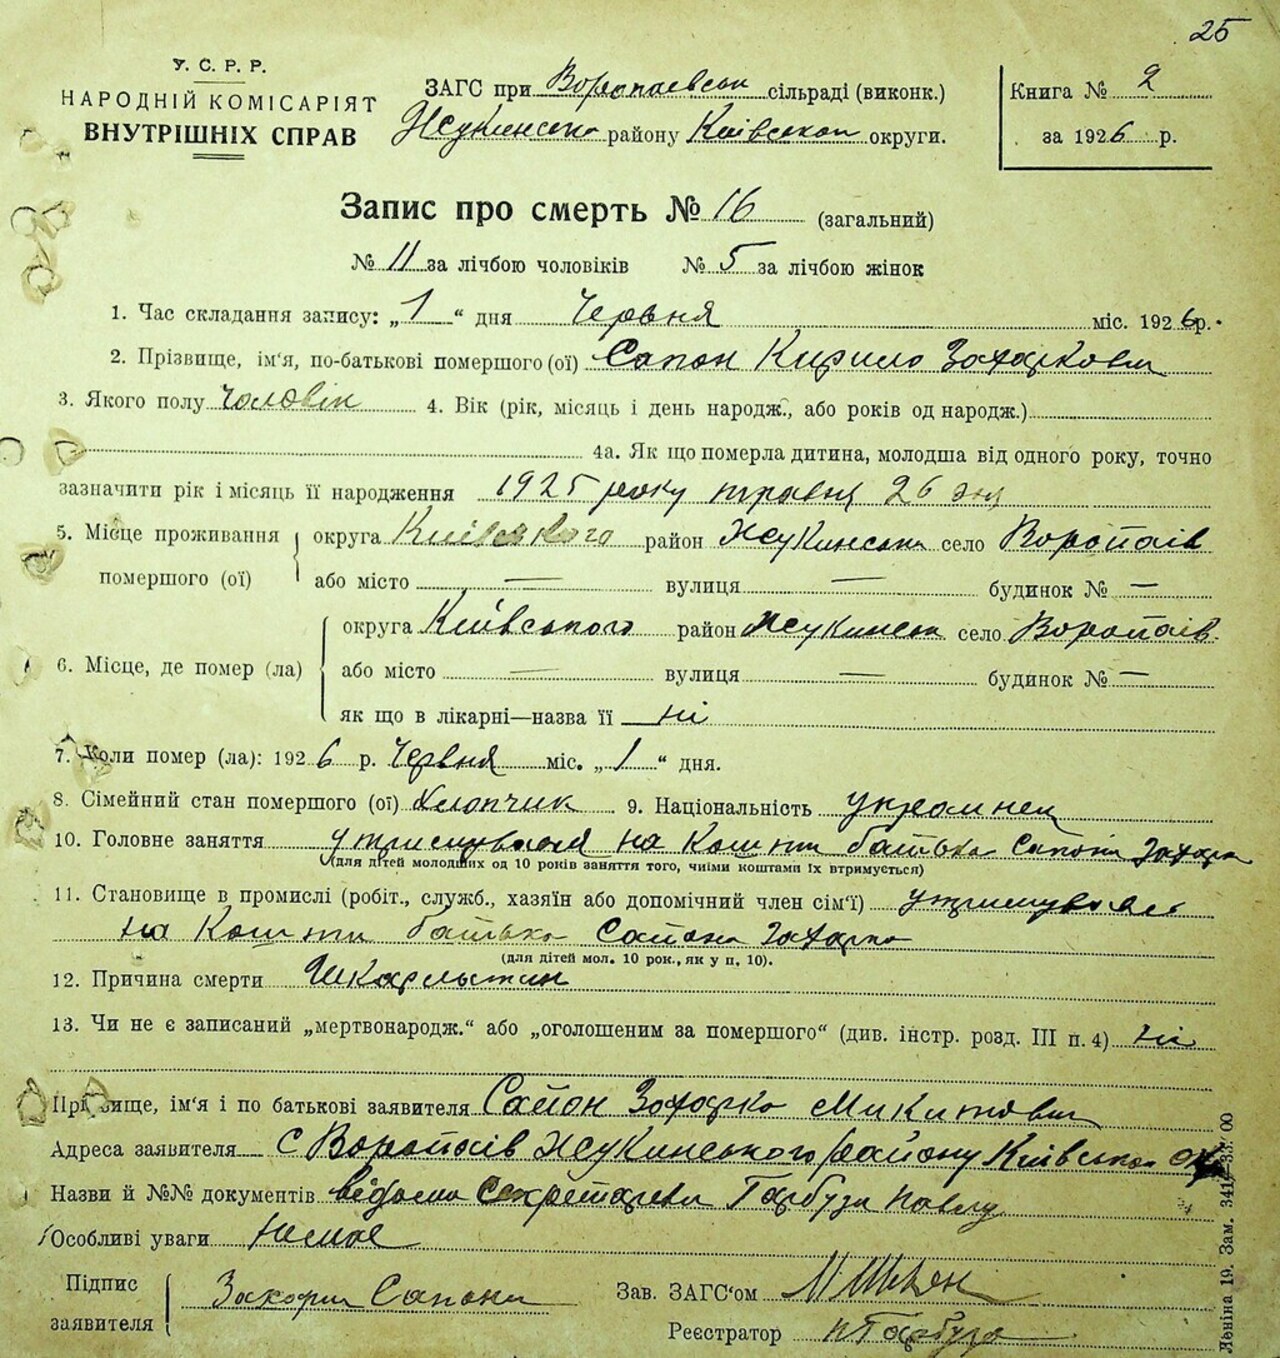 25
У. С. Р. Р.
НАРОДНІЙ КОМІСАРІЯТ
ВНУТРІШНІХ СПРАВ
ЗАГС при Воропаевськ сільраді (виконк.)
Жукинсько району Київской округи.
Книга № 2
за 1926 р.
Запис про смерть № 16 (загальний)
№ 11 за лічбою чоловіків № 5 за лічбою жінок
1. Час складання запису: „1“ дня Червня міс. 1926 р.
2. Прізвище, ім'я, по-батькові помершого (ої) Сапон Кирило Захаркович
3. Якого полу Чоловік 4. Вік (рік, місяць і день народж., або років од народж.)
4а. Як що померла дитина, молодша від одного року, точно
зазначити рік і місяць її народження 1925 року травня 26 дня
5. Місце проживання помершого (ої) округа Київського район Жукинськи село Воропаїв
або місто — вулиця — будинок № —
6. Місце, де помер (ла) округа Київського район Жукинськ село Воропаїв
або місто — вулиця — будинок № —
як що в лікарні—назва її ні
7. Коли помер (ла): 1926 р. Червня міс. „1“ дня.
8. Сімейний стан помершого (ої) Хлопчик 9. Національність українец
10. Головне заняття утримувался на кошти батька Сапона Захарка
(для дітей молодших од 10 років заняття того, чиїми коштами їх втримується)
11. Становище в промислі (робіт., служб., хазяїн або допомічний член сім'ї) утримувался
на кошти батька Сапона Захарка
(для дітей мол. 10 рок., як у п. 10).
12. Причина смерти Шкарлытин
13. Чи не є записаний „мертвонародж.“ або „оголошеним за помершого“ (див. інстр. розд. III п. 4) ні
Прізвище, ім'я і по батькові заявителя Сапон Захарко Микитович
Адреса заявителя с Воропаїв Жукинського району Київськои ок
Назви й №№ документів відомо Секретареви Гарбузи Павлу
Особливі уваги Немає
Підпис заявителя Захарка Сапона
Зав. ЗАГС'ом
Реєстратор П Гарбуза
Леніна 19. Зам. 341